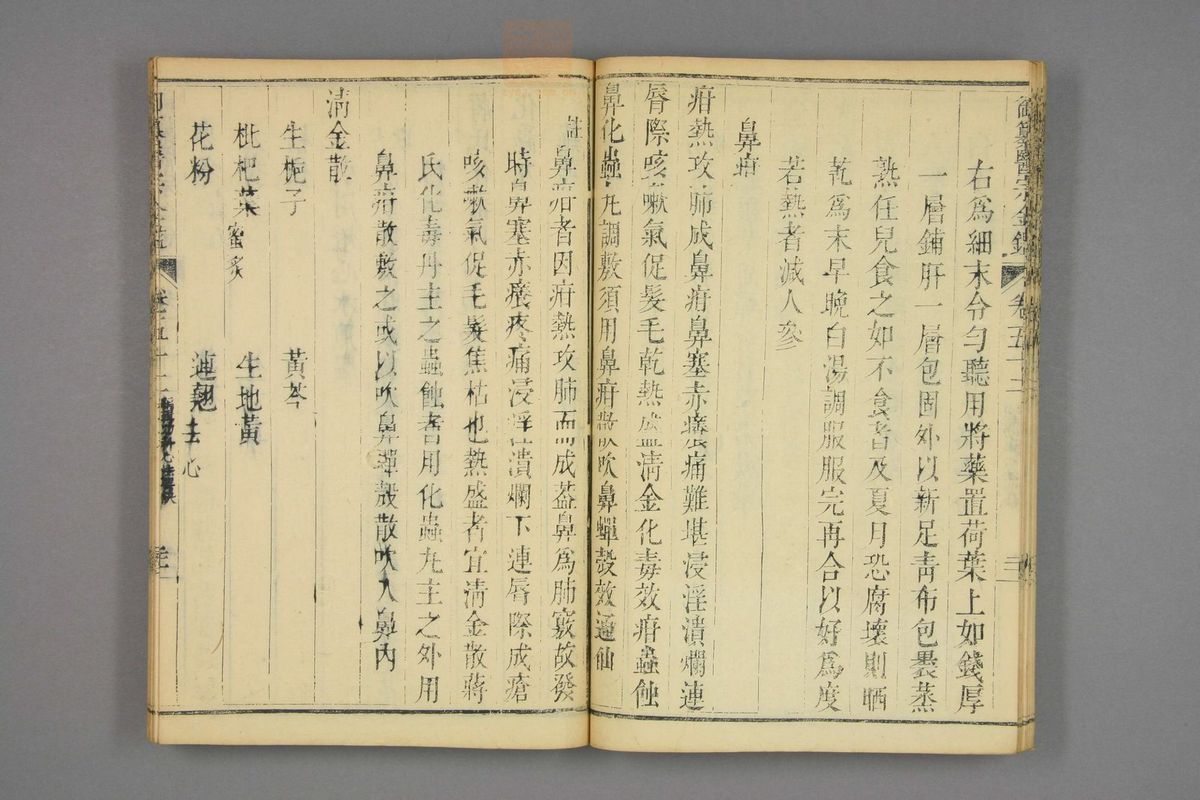 御纂醫宗金鑑 卷五十二
右爲細末合勻聽用將藥置荷葉上如錢厚
一層鋪肝一層包固外以新足靑布包裹蒸
熟任兒食之如不食者及夏月恐腐壞則晒
乾爲末早晚白湯調服服完再合以好爲度
若熱者減人參
鼻疳
疳熱攻肺成鼻疳鼻塞赤癢痛難堪浸淫潰爛連
脣際咳嗽氣促髮毛乾熱盛淸金化毒效疳蟲蝕
鼻化蟲丸調敷須用鼻疳散吹鼻蟬殼效通仙
註 鼻疳者因疳熱攻肺而成葢鼻爲肺竅故發
時鼻塞赤癢疼痛浸淫潰爛下連脣際成瘡
咳嗽氣促毛髮焦枯也熱盛者宜淸金散蔣
氏化毒丹主之蟲蝕者用化蟲丸主之外用
鼻疳散敷之或以吹鼻蟬殼散吹入鼻內
淸金散
生梔子 黃芩
枇杷葉蜜炙 生地黃
花粉 連翹去心